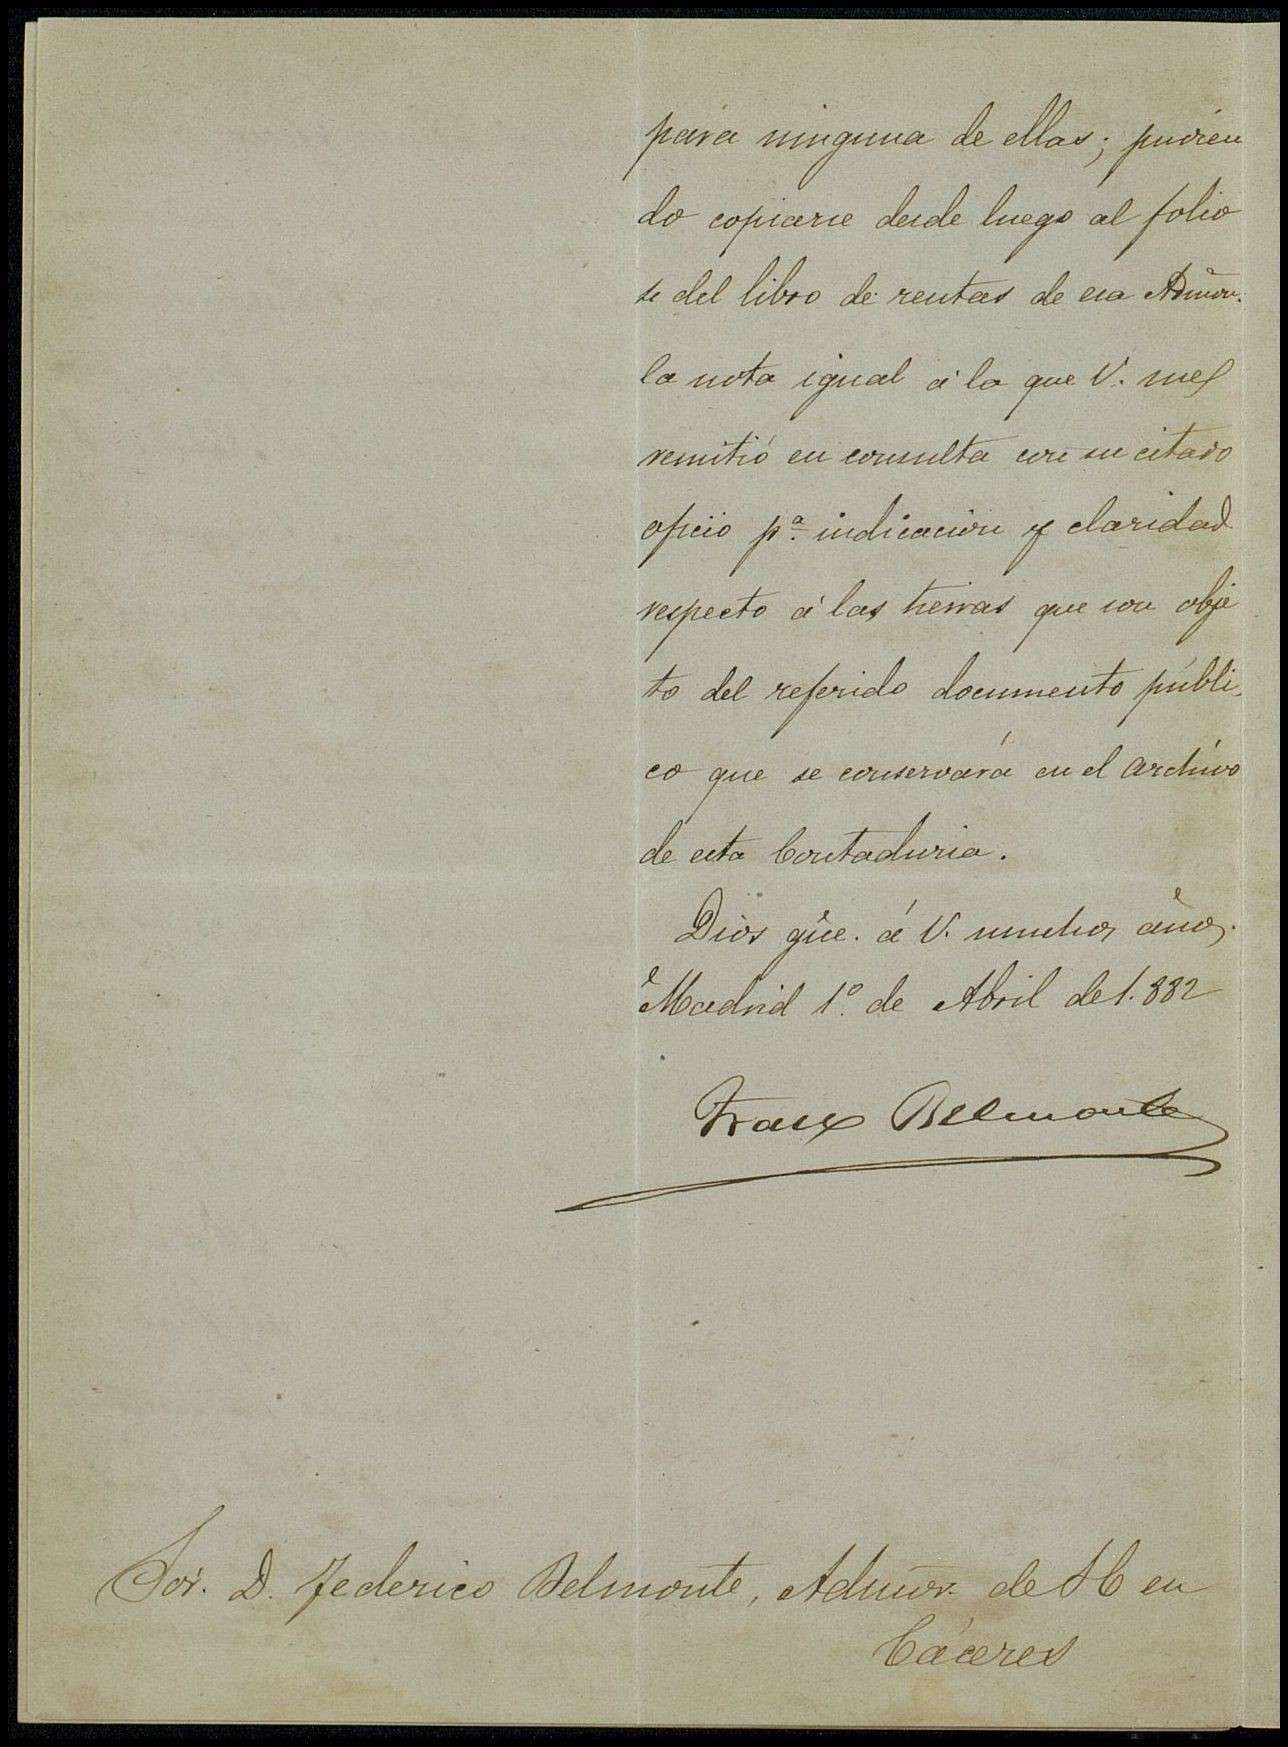 para ninguna de ellas; pudien
do copiarse desde luego al folio
se del libro de rentas de esa Admon.
la nota igual á la que V. me
remitió en consulta con su citado
oficio pª. indicacion y claridad
respecto á las tierras que son obje
to del referido documento públi-
co que se conservará en el archivo
de esta Contaduria.
Dios gũe. á V. muchos años.
Madrid 1º. de Abril de 1.882
Franco Belmonte
Sor. D. Federico Belmonte, Admor. de H en
Cáceres